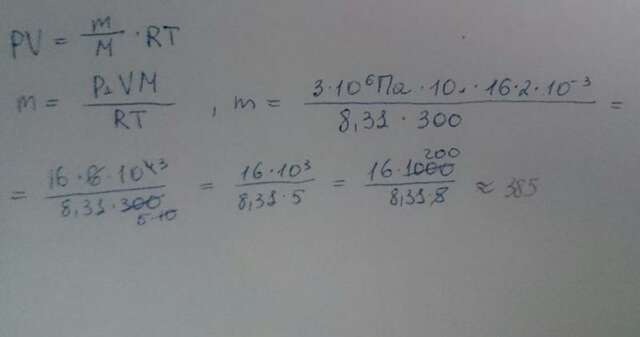 PV = m/M · RT
m = P₁VM/RT , m = 3·10⁶Па · 10л · 16·2·10⁻³/8,31 · 300 =
= 16·6·10⁴³/8,31·300 5·10 = 16·10³/8,31·5 = 16·1000 200/8,31·5 ≈ 385